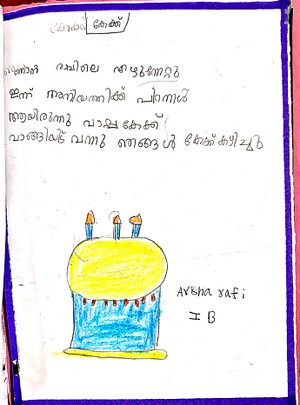 കേക്ക്
രാവിലെ എഴുന്നേറ്റു
ഇന്ന് അനിയത്തിക്ക് പിറന്നാൾ
ആയിരുന്നു വാപ്പ കേക്ക്
വാങ്ങിയിട്ട് വന്നു ഞങ്ങൾ കേക്ക് കഴിച്ചു
Arsha rafi
I B